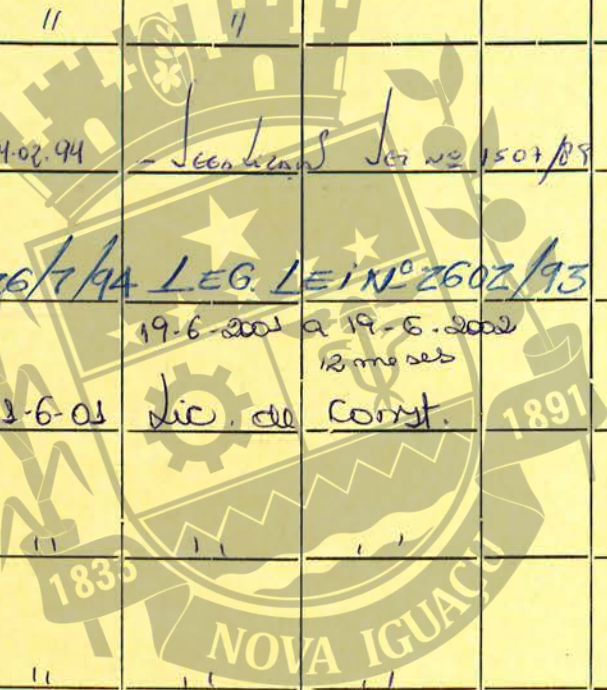 " "
4.02.94 - Legalização Lei Nº 1507/89
26/7/94 LEG. LEI Nº 2602/93
19-6-2001 a 19-6-2002
12 meses
1-6-01 Lic. de Const.
" " "
" " "
1833 NOVA IGUAÇU 1891